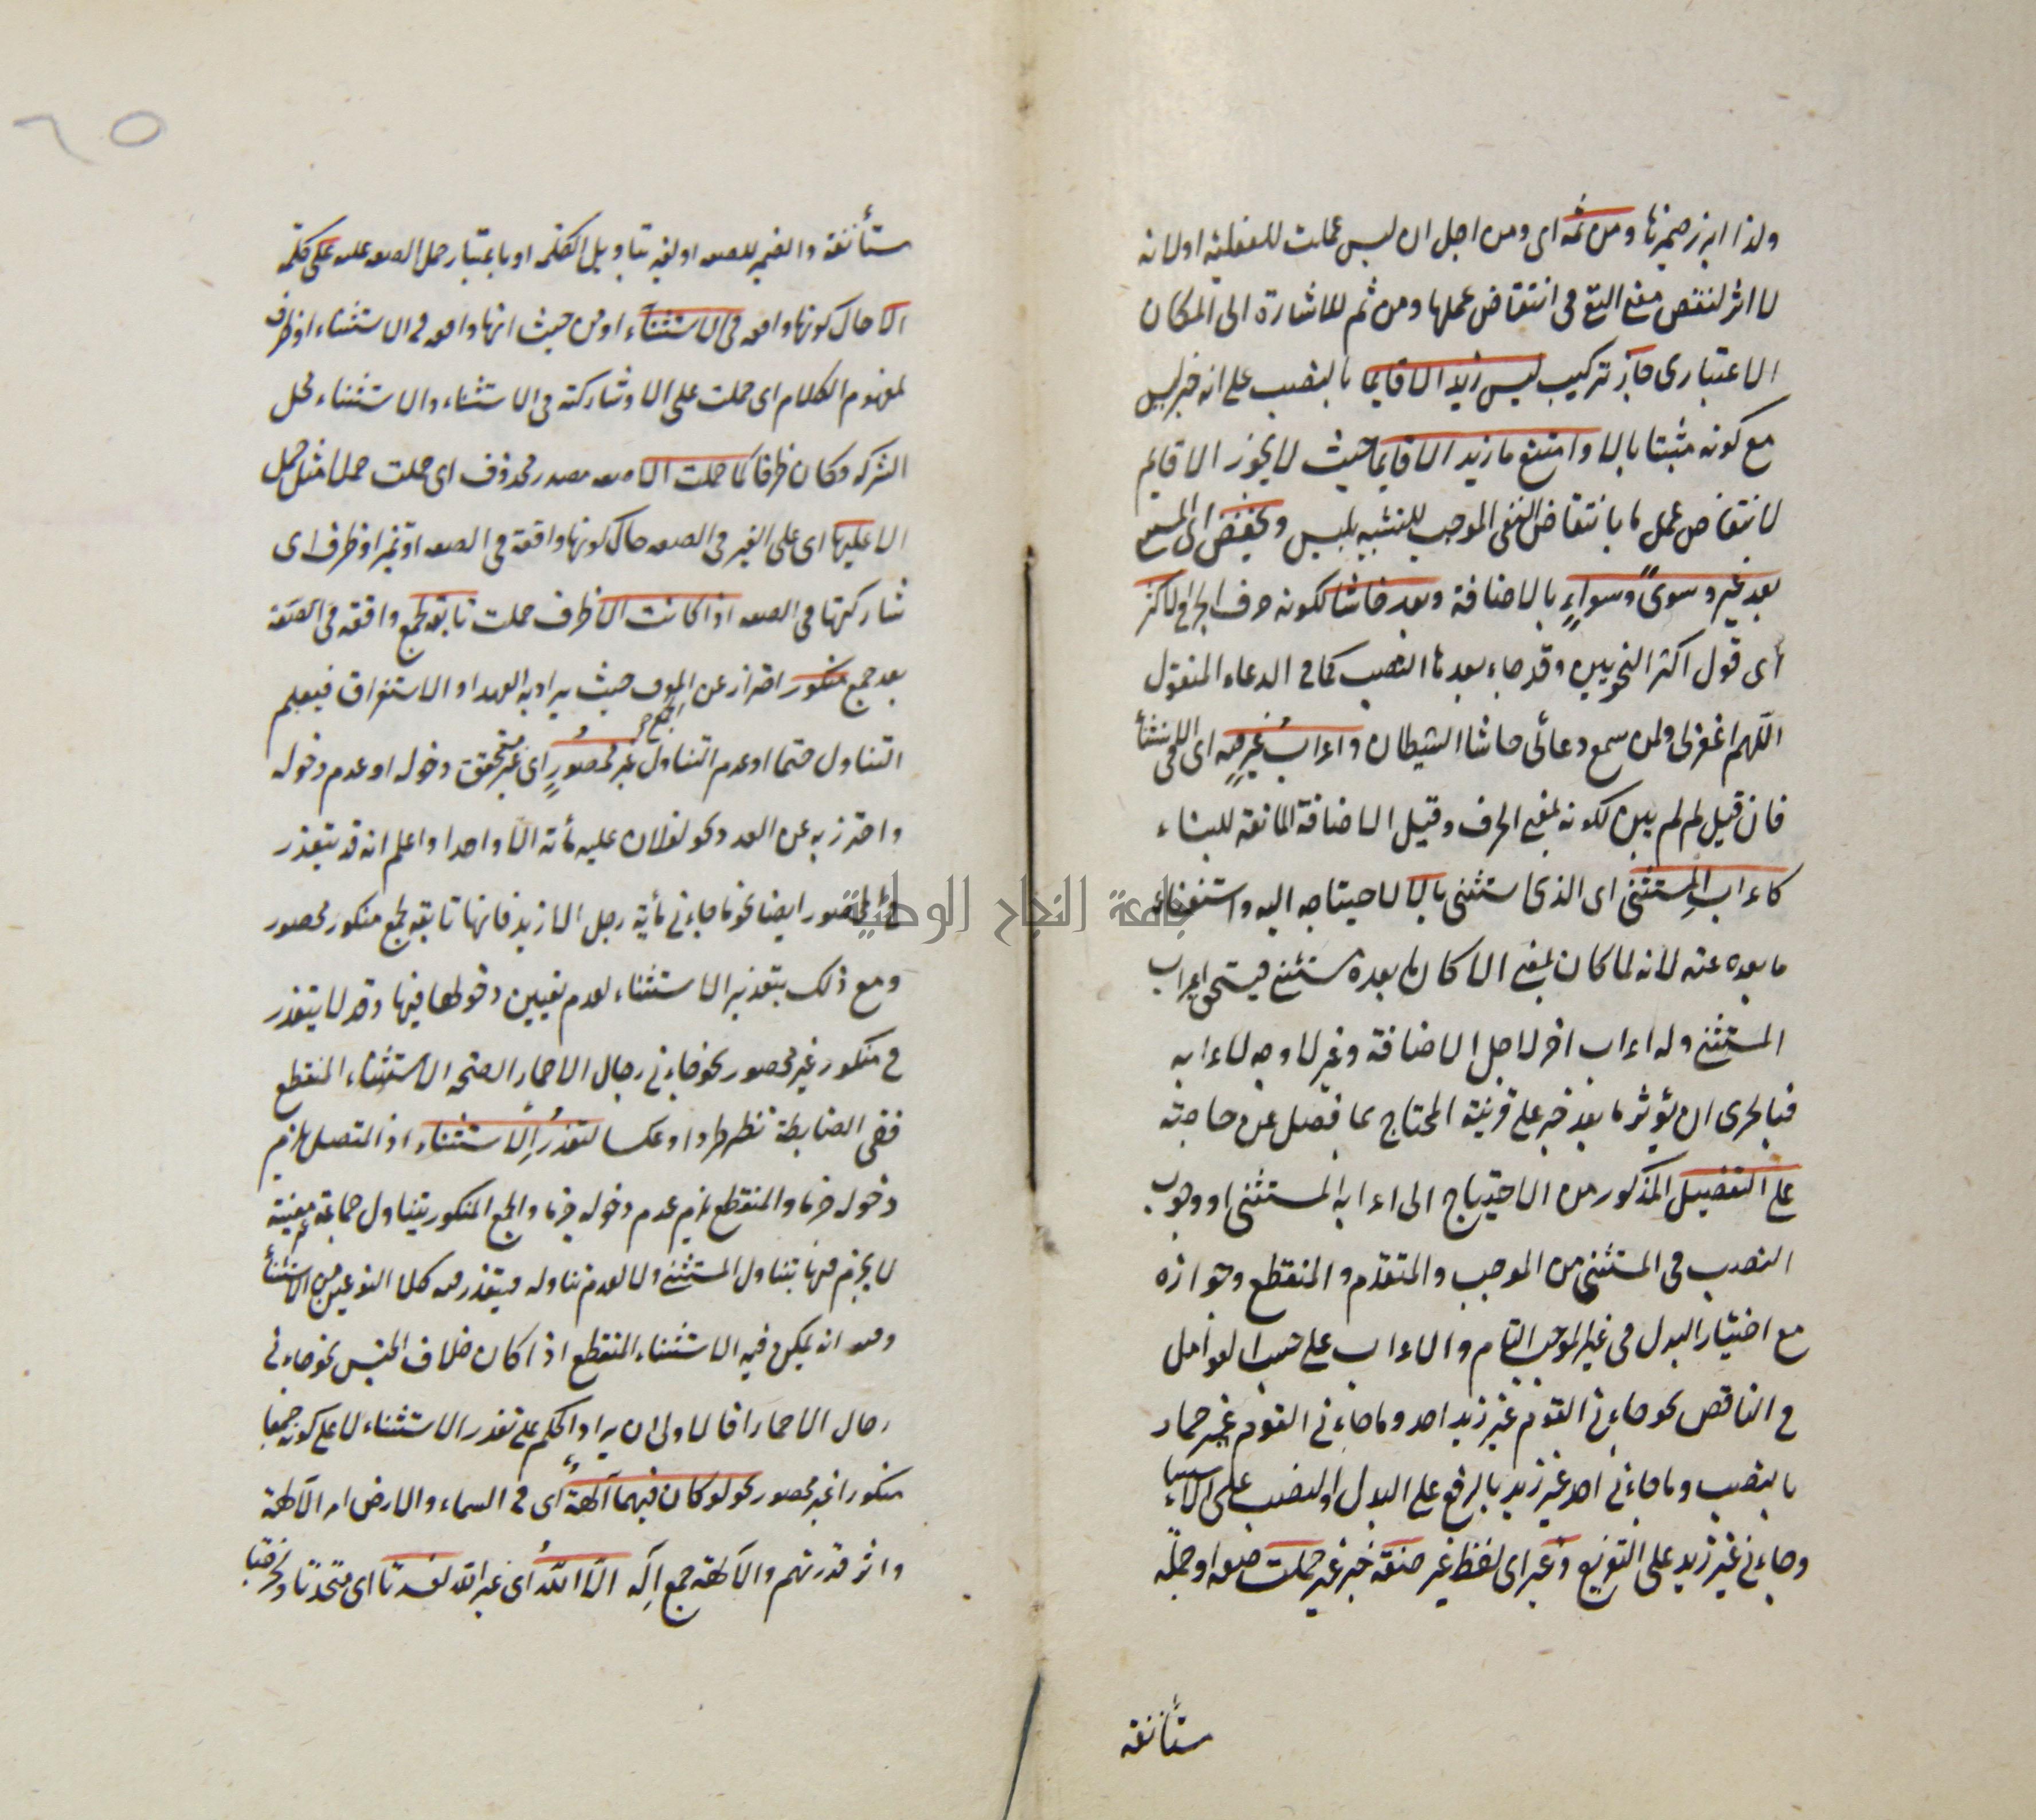 ولذا ابرز ضميرها ومن ثمه اى ومن اجل ان ليس عملت للفعلية اولا نه
لا اثر لنقض معنى النفى فى انتقاض عملها ومن ثم للاشارة الى المكان
الاعتبارى جاز تركيب ليس زيد الا قائما بالنصب على انه خبر ليس
مع كونه مثبتا بالا وامتنع ما زيد الا قائما حيث لا يجوز الا قايم
لانتقاض عمل ما بانتقاض النفى الموجب للتشبيه بليس ويخفض اى المستثنى
بعد غير وسوى وسواء بالاضافة وبعد حاشا لكونه حرف الجر فى الاكثر
أى قول اكثر النحويين وقد جاء بعدها النصب كما فى الدعاء المنقول
اللهم اغفر لى ولمن سمع دعائى حاشا الشيطان واعراب غير فيه اى فى الاستثناء
فان قيل لم لم يبن لكونه بمعنى الحرف وقيل الاضافة المانعة للبناء
كاعراب المستثنى اى الذى استثنى بالا لاحتياجه اليه واستغناء
ما بعده عنه لانه لما كان بمعنى الا كان ما بعده مستثنى فيستحق اعراب
المستثنى وله اعراب اخر لاجل الاضافة وغير لا وجه لاعرابه
فبالحرى ان يؤثر ما بعد غير على قرينة المحتاج بما فضل عن حاجته
على التفصيل المذكور من الاحتياج الى اعرابه المستثنى او وجوب
النصب فى المستثنى من الموجب والمتقدم والمنقطع وجوازه
مع اختيار البدل فى غير الموجب التام والاعراب على حسب العوامل
فى الناقص نحو جاءنى القوم غير زيد احد وما جاءنى القوم غير حمار
بالنصب وما جاءنى احد غير زيد بالرفع على البدل او النصب على الاستثناء
وجاءنى غير زيد على التوزيع وغير اى لفظ غير صفة خبر غير حملت صفه او جملة
ستأنفة
ستأنفة والضمير للصفه او لغير بتاويل الكلمة او باعتبار حمل الصفه عليه على كلمة
الا حال كونها واقعه فى الاستثناء او من حيث انها واقعه فى الاستثناء او ظرف
لمفهوم الكلام اى حملت على الا وشاركته فى الاستثناء والاستثناء محل
الشركه وكان ظرفا كما حملت الا صفه مصدر محذوف اى حملت حملا مثل حمل
الا عليها اى على الغير فى الصفه حال كونها واقعة فى الصفه او تميز او ظرف اى
شاركتها فى الصفه اذا كانت الا ظرف حملت تابعة لجمع واقعة فى الصفة
بعد جمع منكور احتراز عن المعرف حيث يراد به العهد او الاستغراق فيعلم
التناول حتما او عدم التناول غير محصور اى غير متحقق دخوله او عدم دخوله
واحترز به عن العدد نحو لفلان عليه مأة الا واحدا واعلم انه قد يتعذر
فى المحصور ايضا نحو ما جاءنى مأية رجل الا زيد فانها تابعة لجمع منكور محصور
ومع ذلك يتعذر الاستثناء لعدم تعيين دخولها فيها وقد لا يتعذر
فى منكور غير محصور نحو جاءنى رجال الا حمار الصحة الاستثناء المنقطع
ففى الضابطة نظر طردا وعكسا لتعذر الاستثناء اذ المتصل يلزم
دخوله جزما والمنقطع يلزم عدم دخوله جزما والجمع المنكور يتناول جماعة معينة
لا يجزم فيها بتناول المستثنى ولا لعدم تناوله فيتعذر فيه كلا النوعين من الاستثناء
وفيه انه يمكن فيه الاستثناء المنقطع اذا كان خلاف الجنس نحو جاءنى
رجال الا حمارا فالاولى ان يراد الحكم على تعذر الاستثناء لا على كونه جمعا
منكورا غير محصور نحو لو كان فيهما آلهة أى فى السماء والارض امر الآلهة
واثر قدرتهم والآلهة جمع اله الا الله أى غير الله لفسدتا اى
٦٥
جامعة النجاح الوطنية